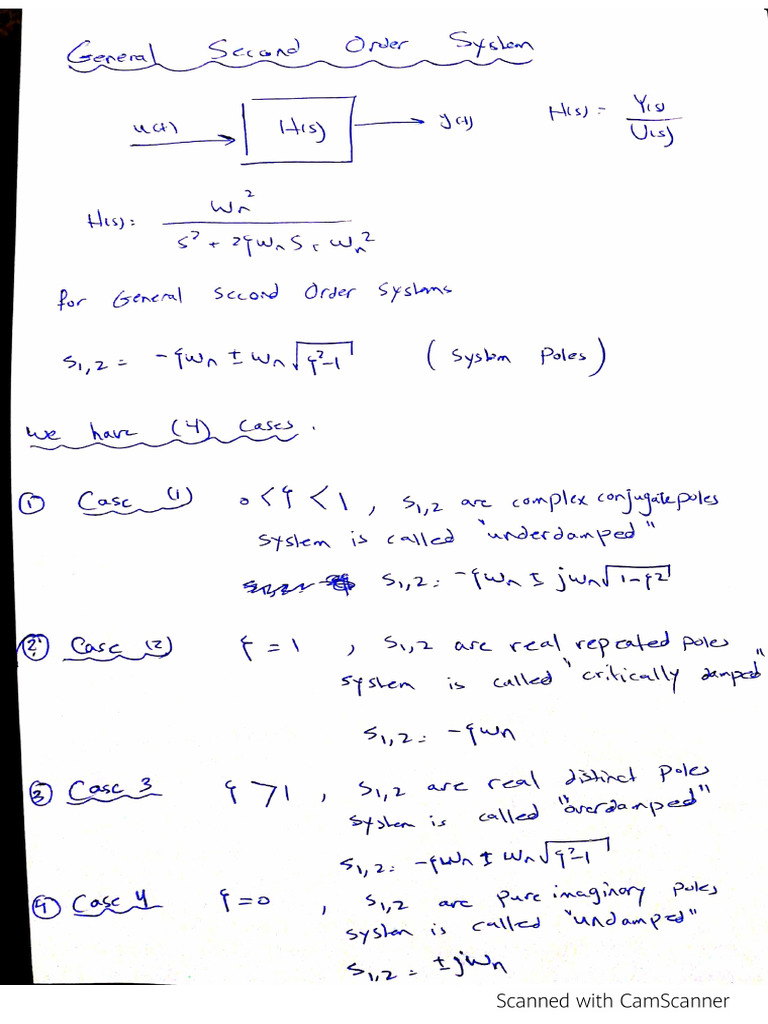 General Second Order System
u(t) H(s) y(t) H(s) = Y(s)/U(s)
H(s) = ωn²/(s² + 2ζωn s + ωn²)
for General Second Order Systems
s1,2 = -ζωn ± ωn√(ζ²-1) (System Poles)
We have (4) Cases.
① Case (1) 0<ζ<1, s1,2 are complex conjugate poles
system is called "underdamped"
s1,2 = -ζωn ± jωn√(1-ζ²)
② Case (2) ζ = 1, s1,2 are real repeated poles
system is called "critically damped"
s1,2 = -ζωn
③ Case 3 ζ>1, s1,2 are real distinct Poles
system is called "overdamped"
s1,2 = -ζωn ± ωn√(ζ²-1)
④ Case 4 ζ=0, s1,2 are pure imaginory poles
system is called "undamped"
s1,2 = ±jωn
Scanned with CamScanner